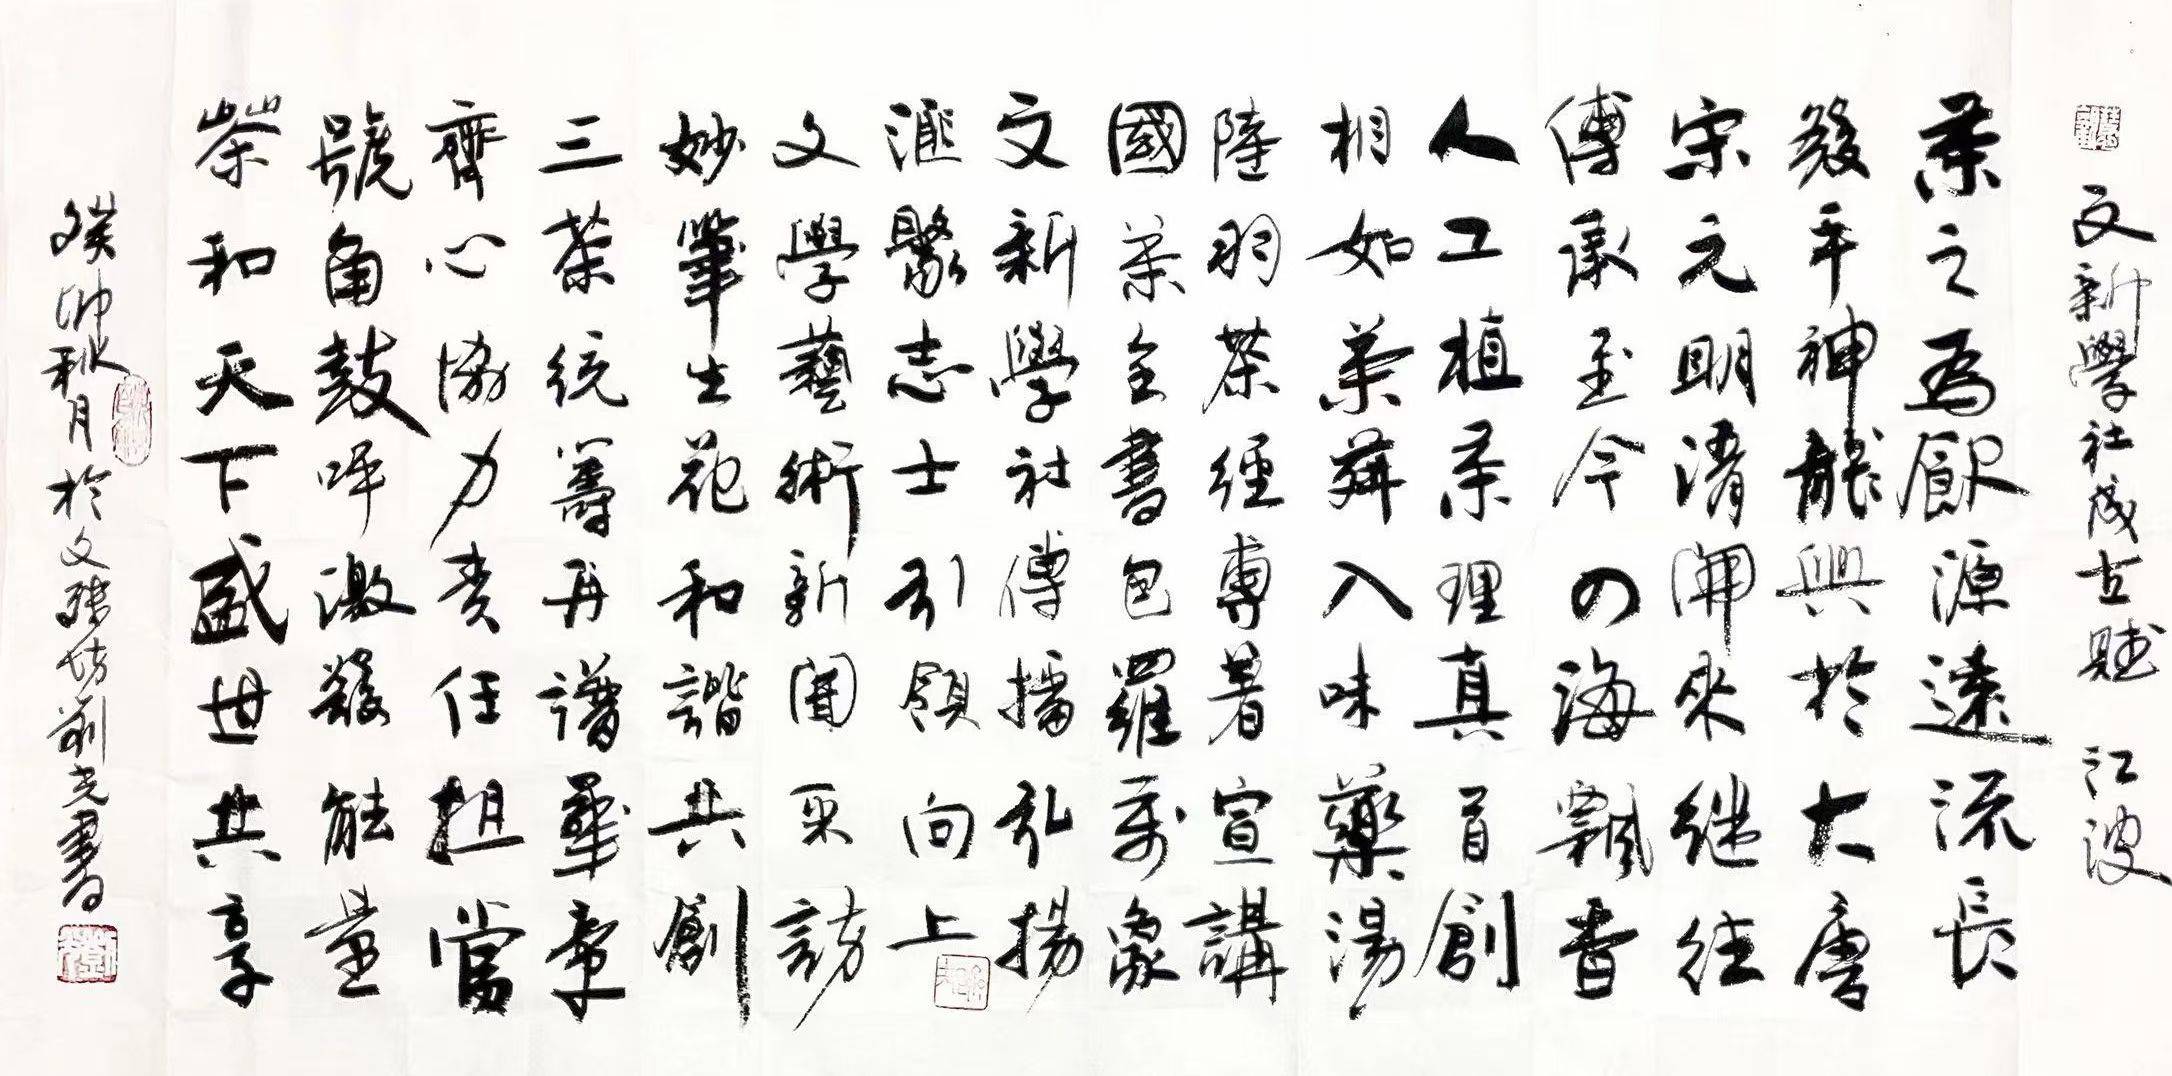 文新學社成立賦 江波
茶之為飲源遠流長
發乎神龍興於大唐
宋元明清開來繼往
傳承至今四海飄香
人工植茶理真首創
相如茶薺入味藥湯
陸羽茶經專著宣講
國茶全書包羅萬象
文新學社傳播弘揚
滙聚志士引領向上
文學藝術新聞采訪
妙筆生花和諧共創
三茶統籌再譜華章
齊心協力責任担當
號角鼓呼激發能量
茶和天下盛世共享
癸卯秋月於文瑞坊前光書